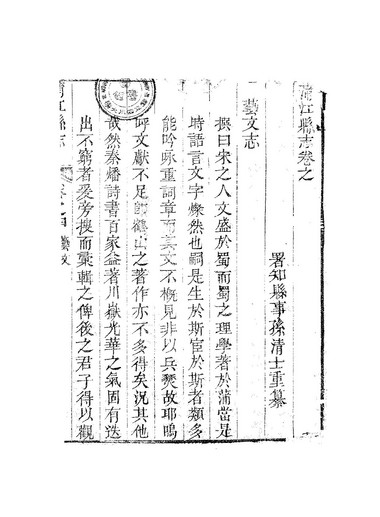 蒲江縣志卷之
署知縣事孫清士重纂
藝文志
撰曰宋之人文盛於蜀而蜀之理學著於蒲當是
時語言文字燦然也嗣是生於斯宦於斯者類多
能吟咏重詞章而其文不概見非以兵燹故耶嗚
呼文獻不足即鶴山之著作亦不多得矣況其他
哉然秦燔詩書百家益著川嶽光華之氣固有迭
出不窮者爰旁搜而彙輯之俾後之君子得以觀
蒲江縣志
卷之四 藝文